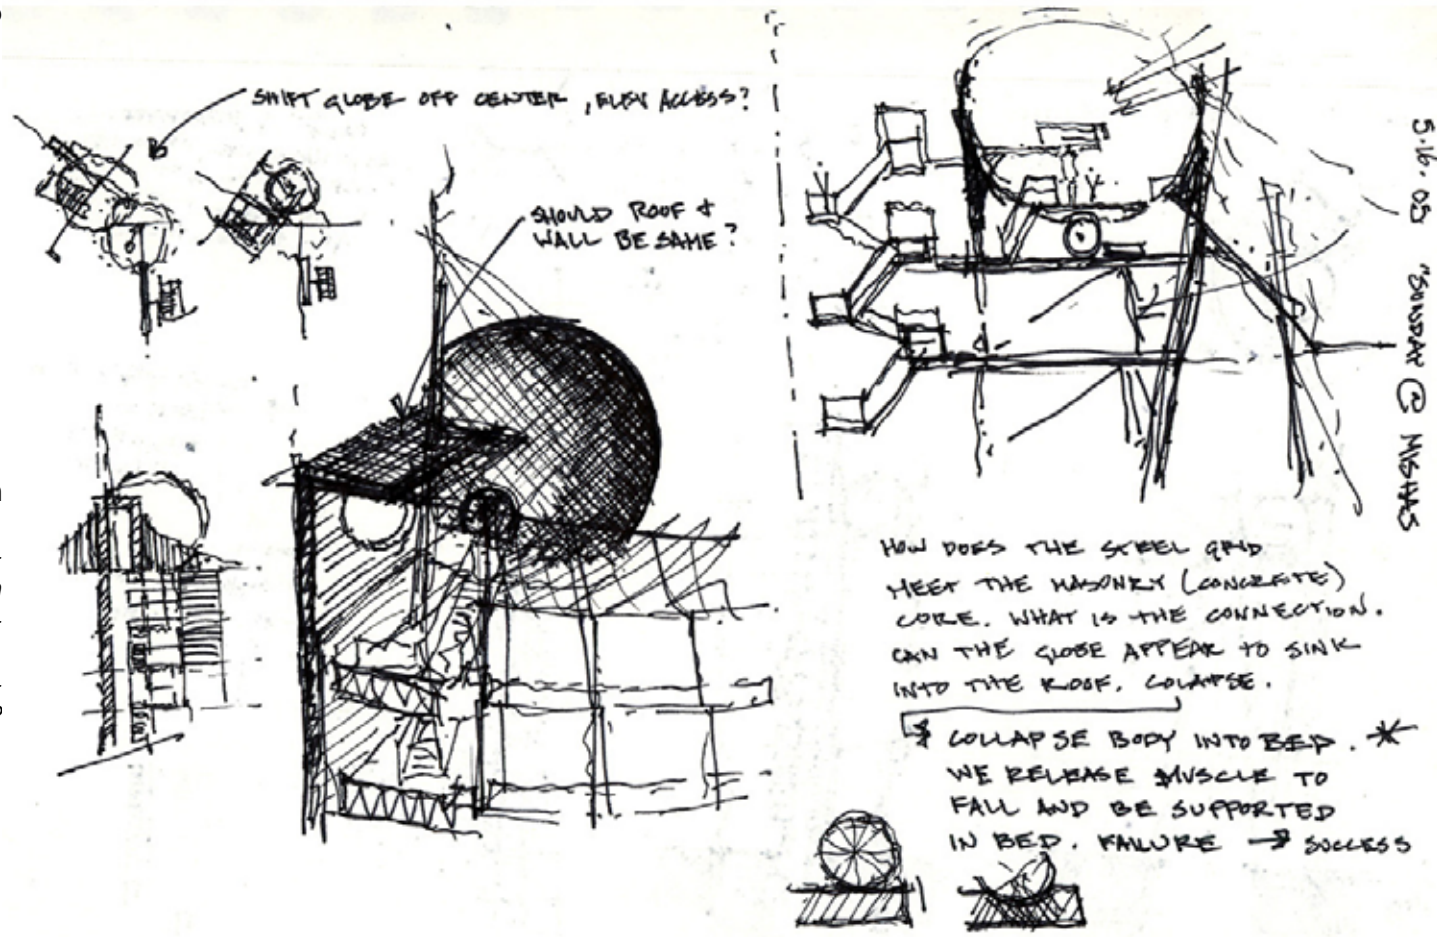 SHIFT GLOBE OFF CENTER, ELEV ACCESS?
SHOULD ROOF &
WALL BE SAME?
5.16.05 "SUNDAY @ MISHAS
HOW DOES THE STEEL GRID
MEET THE MASONRY (CONCRETE)
CORE. WHAT IS THE CONNECTION.
CAN THE GLOBE APPEAR TO SINK
INTO THE ROOF. COLAPSE.
COLLAPSE BODY INTO BED. *
WE RELEASE MUSCLE TO
FALL AND BE SUPPORTED
IN BED. FAILURE → SUCCESS